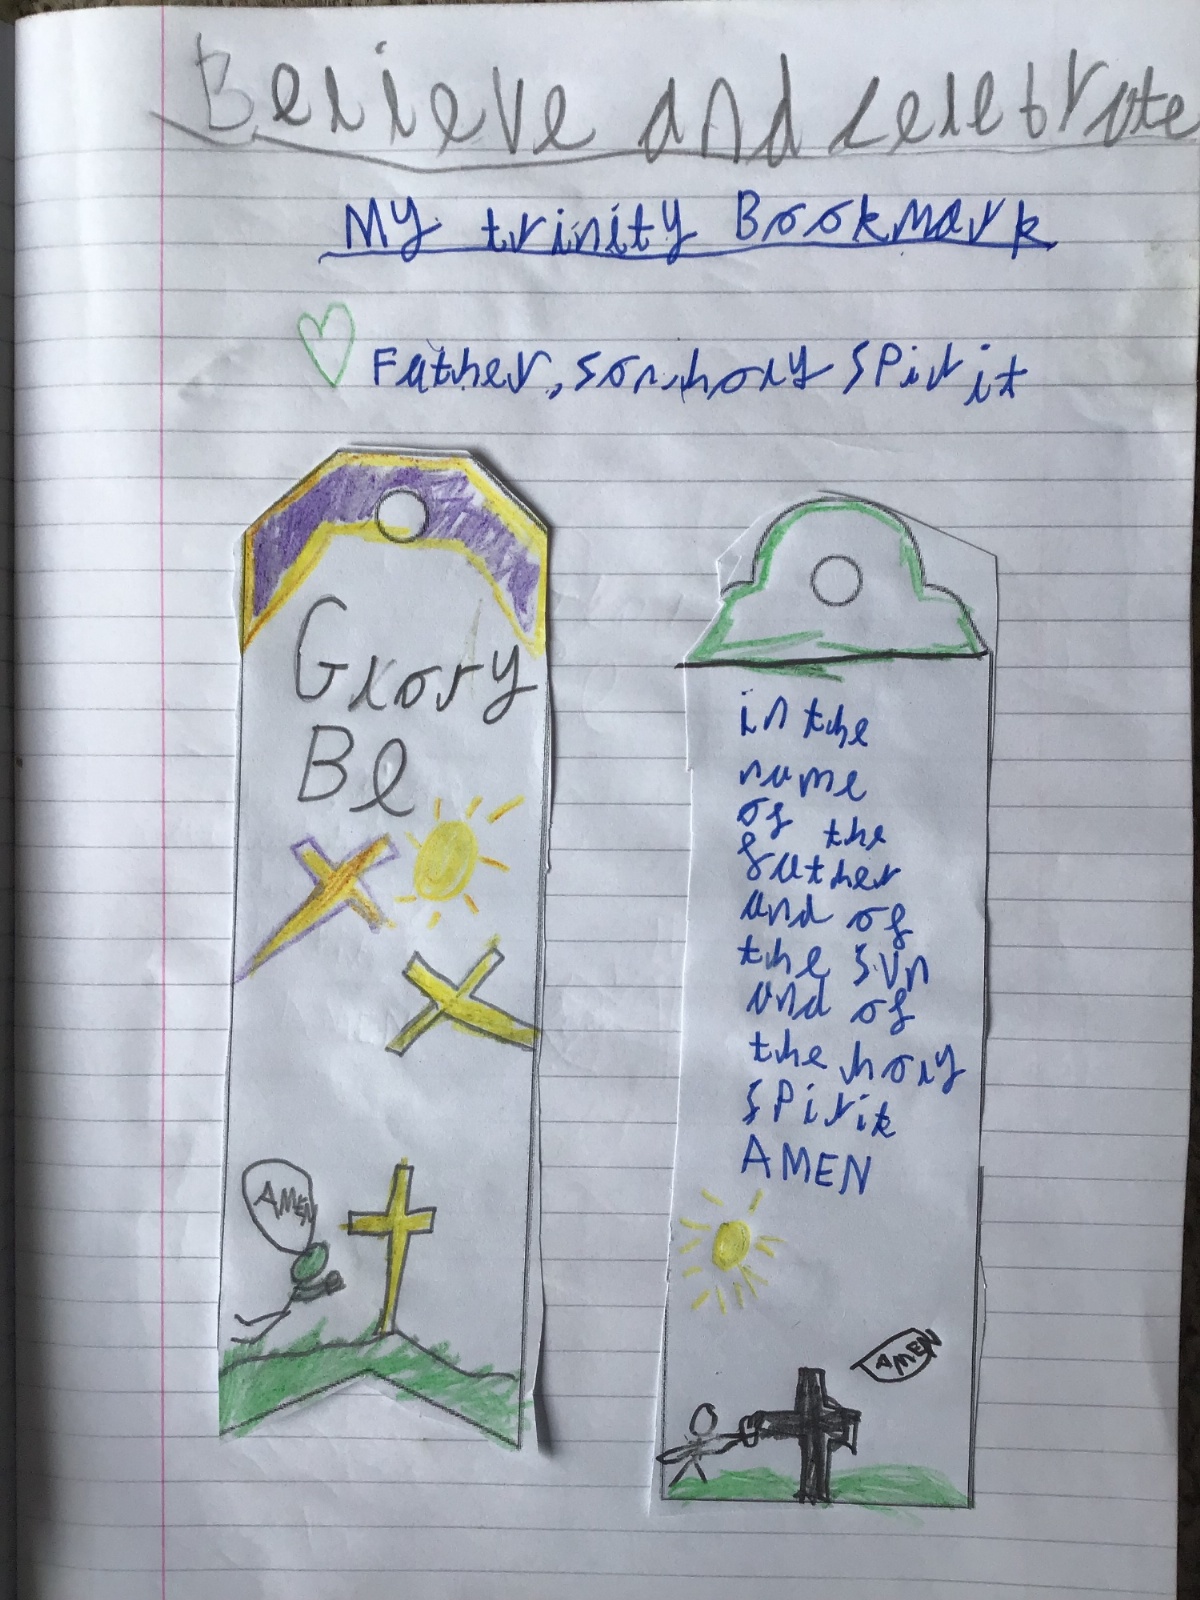 Believe and celebrate
My trinity Bookmark
Father, son, holy spirit
Glory
Be
AMEN
in the
name
of the
father
and of
the sun
and of
the holy
spirit
AMEN
AMEN